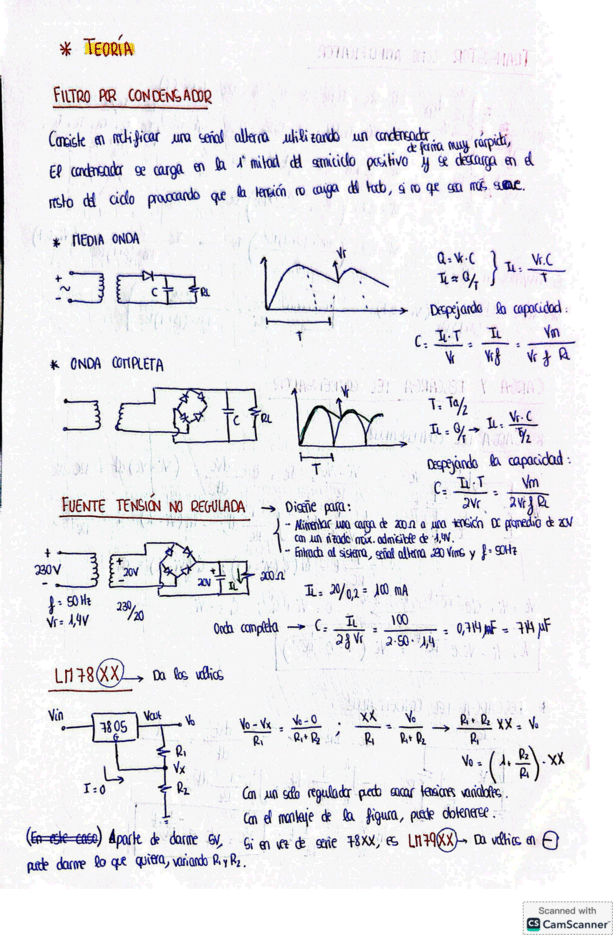 * TEORÍA
FILTRO POR CONDENSADOR
Consiste en rectificar una señal alterna utilizando un condensador.
de forma muy rápida,
El condensador se carga en la 1ª mitad del semiciclo positivo y se descarga en el
resto del ciclo provocando que la tensión no caiga del todo, si no que sea más suave.
* MEDIA ONDA
+ ~ - C RL
Vr
T
Q = Vr·C
IL ≈ Q/T } IL = Vr·C / T
Despejando la capacidad:
C = IL·T / Vr = IL / Vr f = Vm / Vr f RL
* ONDA COMPLETA
C RL
Vr
T
T = Ta/2
IL = Q/T → IL = Vr·C / T/2
Despejando la capacidad:
C = IL·T / 2Vr = Vm / 2Vr f RL
FUENTE TENSIÓN NO REGULADA → Diseñe para:
- Alimentar una carga de 200Ω a una tensión DC promedio de 20V
con un rizado máx. admisible de 1,4V.
- Entrada al sistema, señal alterna 230 Vrms y f = 50Hz
+ 230V - + 20V - 20V + IL 200Ω
f = 50 Hz
Vr = 1,4V
230/20
IL = 20/0,2 = 100 mA
Onda completa → C = IL / 2 f Vr = 100 / 2·50·1,4 = 0,714 µF = 714 µF
LM78XX → Da los voltios
Vin 7805 G Vout Vo
R1
Vx
R2
I=0
Vo - Vx / R1 = Vo - 0 / R1 + R2 ; XX / R1 = Vo / R1 + R2 → R1 + R2 / R1 XX = Vo
Vo = (1 + R2 / R1) · XX
Con un solo regulador puedo sacar tensiones variables.
Con el montaje de la figura, puede obtenerse:
(En este caso) Aparte de darme 5V,
puede darme lo que quiera, variando R1 y R2.
Si en vez de serie 78XX, es LM79XX → Da voltios en -
Scanned with
CS CamScanner